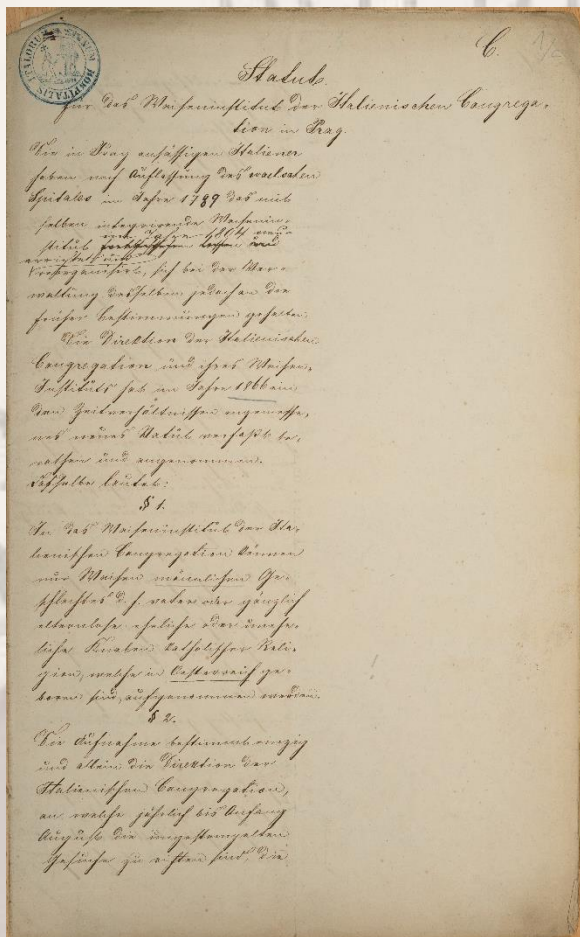 C. 1/2
HOSPITALIS ITALORUM
Statut
für das Waiseninstitut der Italienischen Congrega-
tion in Prag.
Die in Prag ansässigen Italiener
haben nach Auflassung des wälschen
Spitales im Jahre 1789 das mit
selben integrirende Waisenin-
stitut im Jahre 1804 neu
errichtet und
reorganisirt, sich bei der Ver-
waltung desselben jedoch an die
früher Bestimmungen gehalten.
Die Direktion der Italienischen
Congregation und ihres Waisen-
Instituts hat im Jahre 1866 ein
den Zeitverhältnissen angemesse-
nes neues Statut verfaßt be-
rathen und angenommen.
Dasselbe lautet:
§ 1.
In das Waiseninstitut der Ita-
lienischen Congregation können
nur Waisen männlichen Ge-
schlechtes d. h. vater oder gänzlich
elternlose eheliche oder unehe-
liche Knaben katholischer Reli-
gion, welche in Oesterreich ge-
boren sind, aufgenommen werden.
§ 2.
Die Aufnahme bestimmt einzig
und allein die Direktion der
Italienischen Congregation,
an welche jährlich bis Anfang
August die ungestempelten
Gesuche zu richten sind, die